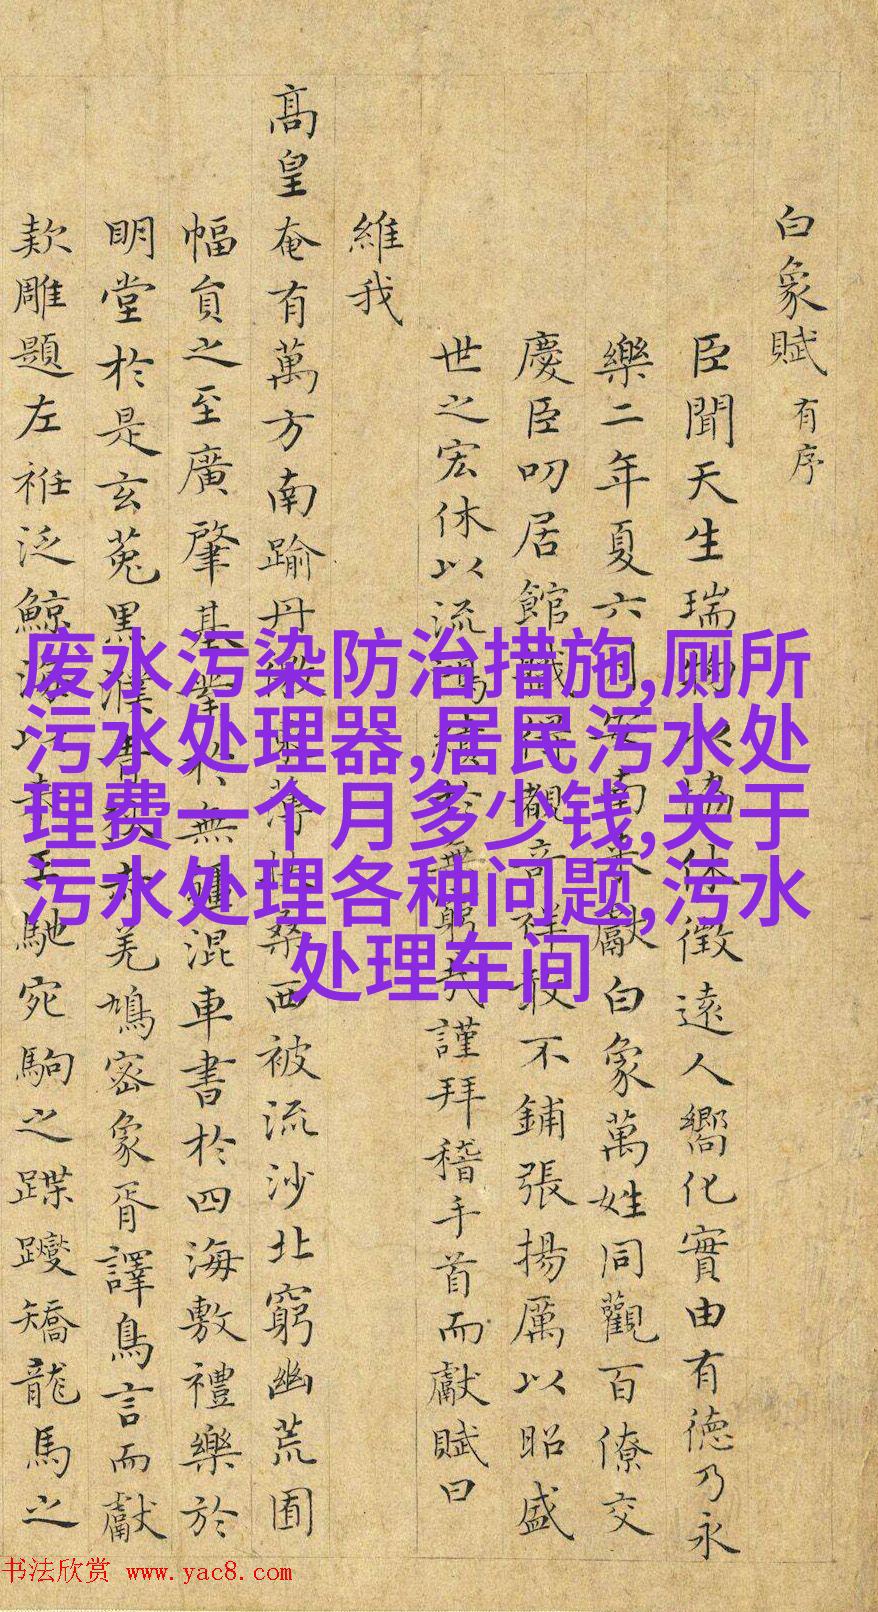 白象賦 有序
臣聞天生瑞物以協休徵遠人嚮化實由有德乃永
樂二年夏六月安南來獻白象萬姓同觀百僚交
慶臣叨居館職獲覩奇祥敢不鋪張揚厲以昭盛
世之宏休以流於無窮哉謹拜稽手首而獻賦曰
維我
高皇奄有萬方南踰丹徼東薄扶桑西被流沙北窮幽荒圉
幅員之至廣肇基業於無疆混車書於四海敷禮樂於
明堂於是玄菟黑濮青羌鳩密象胥譯鳥言而獻
款雕題左衽泛鯨海以來王馳宛駒之蹀躞矯龍馬之
废水污染防治措施,厕所
污水处理器,居民污水处
理费一个月多少钱,关于
污水处理各种问题,污水
处理车间
书法欣赏 www.yac8.com